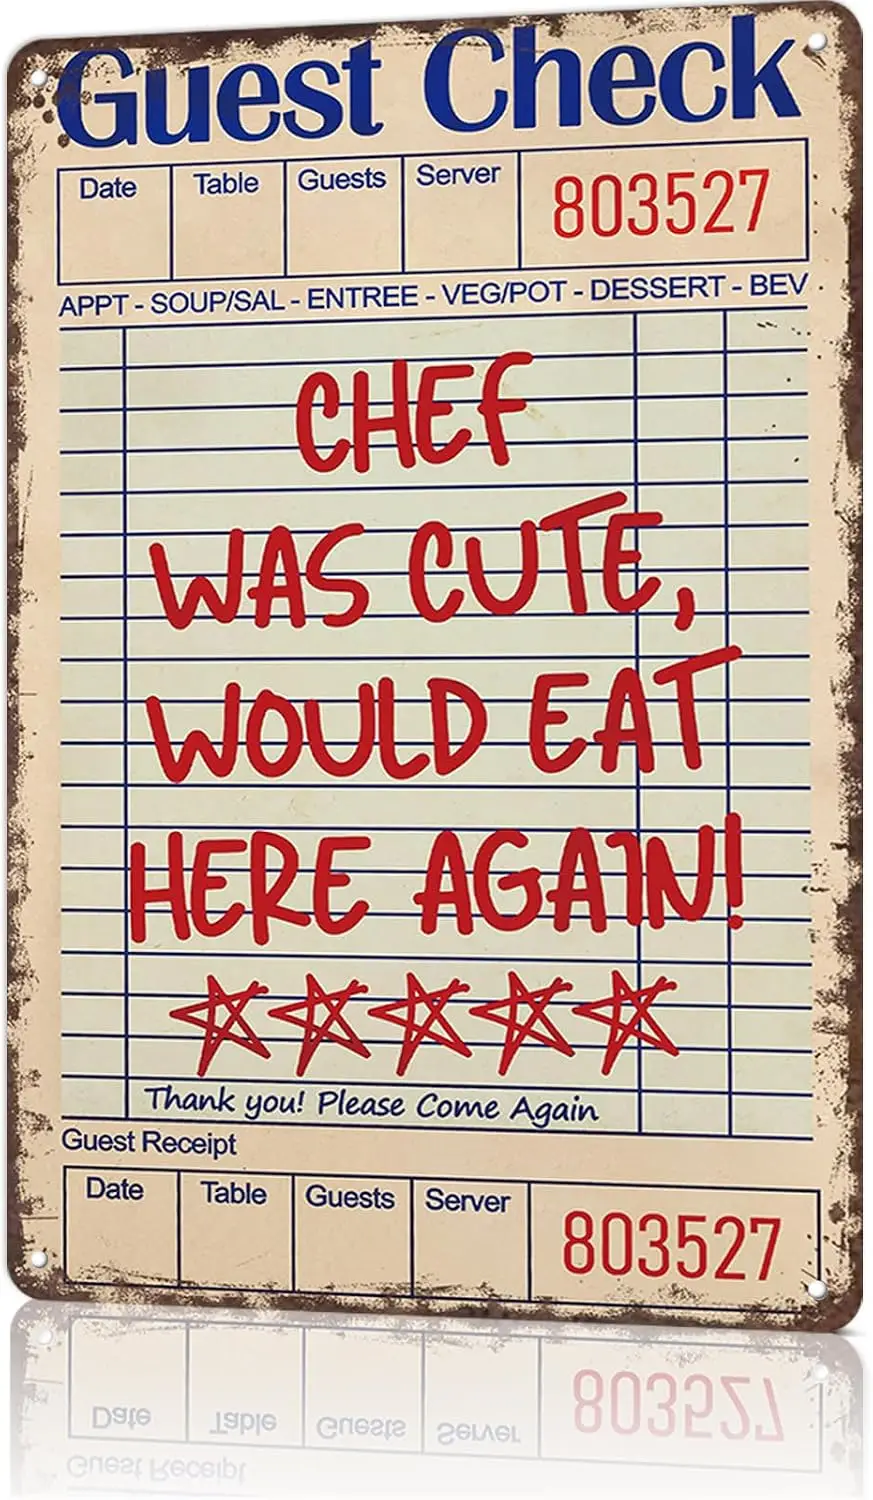 Guest Check
Date Table Guests Server 803527
APPT - SOUP/SAL - ENTREE - VEG/POT - DESSERT - BEV
CHEF
WAS CUTE,
WOULD EAT
HERE AGAIN!
Thank you! Please Come Again
Guest Receipt
Date Table Guests Server 803527